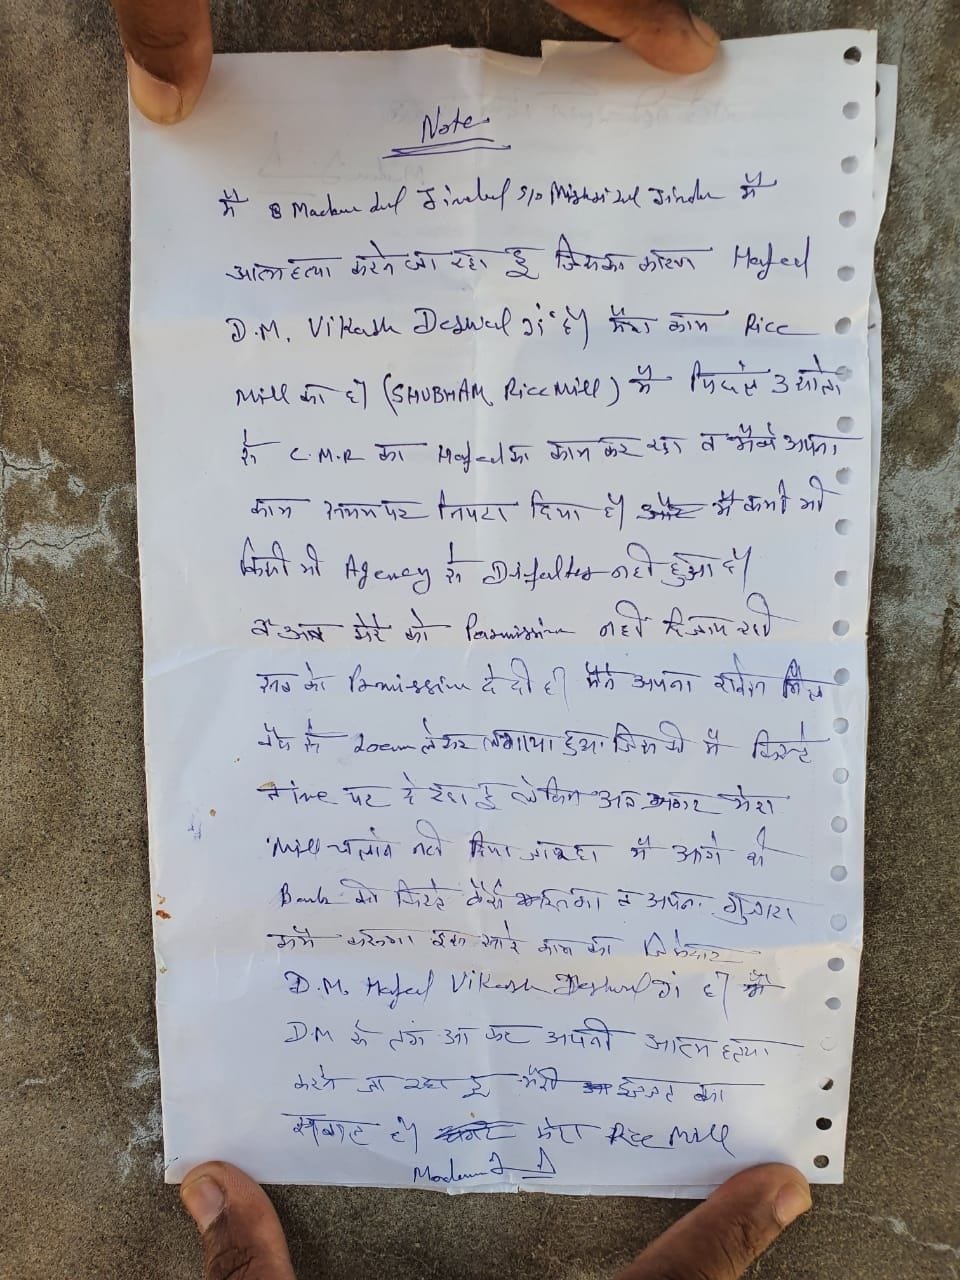 Note
मैं Madan Lal Jindal S/o Mishri Lal Jindal मैं
आत्महत्या करने जा रहा हूँ जिसका कारण Hafed
D.M. Vikash Deswal जी है। मेरा काम Rice
Mill का है। (SHUBHAM Rice Mill) मैं पिछले 3 सालो
से C.M.R का Hafed का काम कर रहा व मैंने अपना
काम समय पर निपटा दिया है। मैं कभी भी
किसी भी Agency से Difalter नही हुआ है।
व अब मेरे को Permission नही दि जा रही
सब को Permission दे दी है। मैंने अपना राईस मिल
बैंक से loan लेकर लगाया हुआ जिसकी मैं किस्ते
time पर दे रहा हूँ लेकिन अब अगर मेरा
Mill चलाने नही दिया जा रहा मैं आगे की
Bank की किस्ते कैसे भरूंगा व अपना गुजारा
कैसे करूंगा इस सारे काम का जिम्मेदार
D.M. Hafed Vikash Deswal जी है।
D.M से तंग आ कर अपनी आत्महत्या
करने जा रहा हूँ मेरी इज्जत का
सवाल है। मेरा Rice Mill
Madan